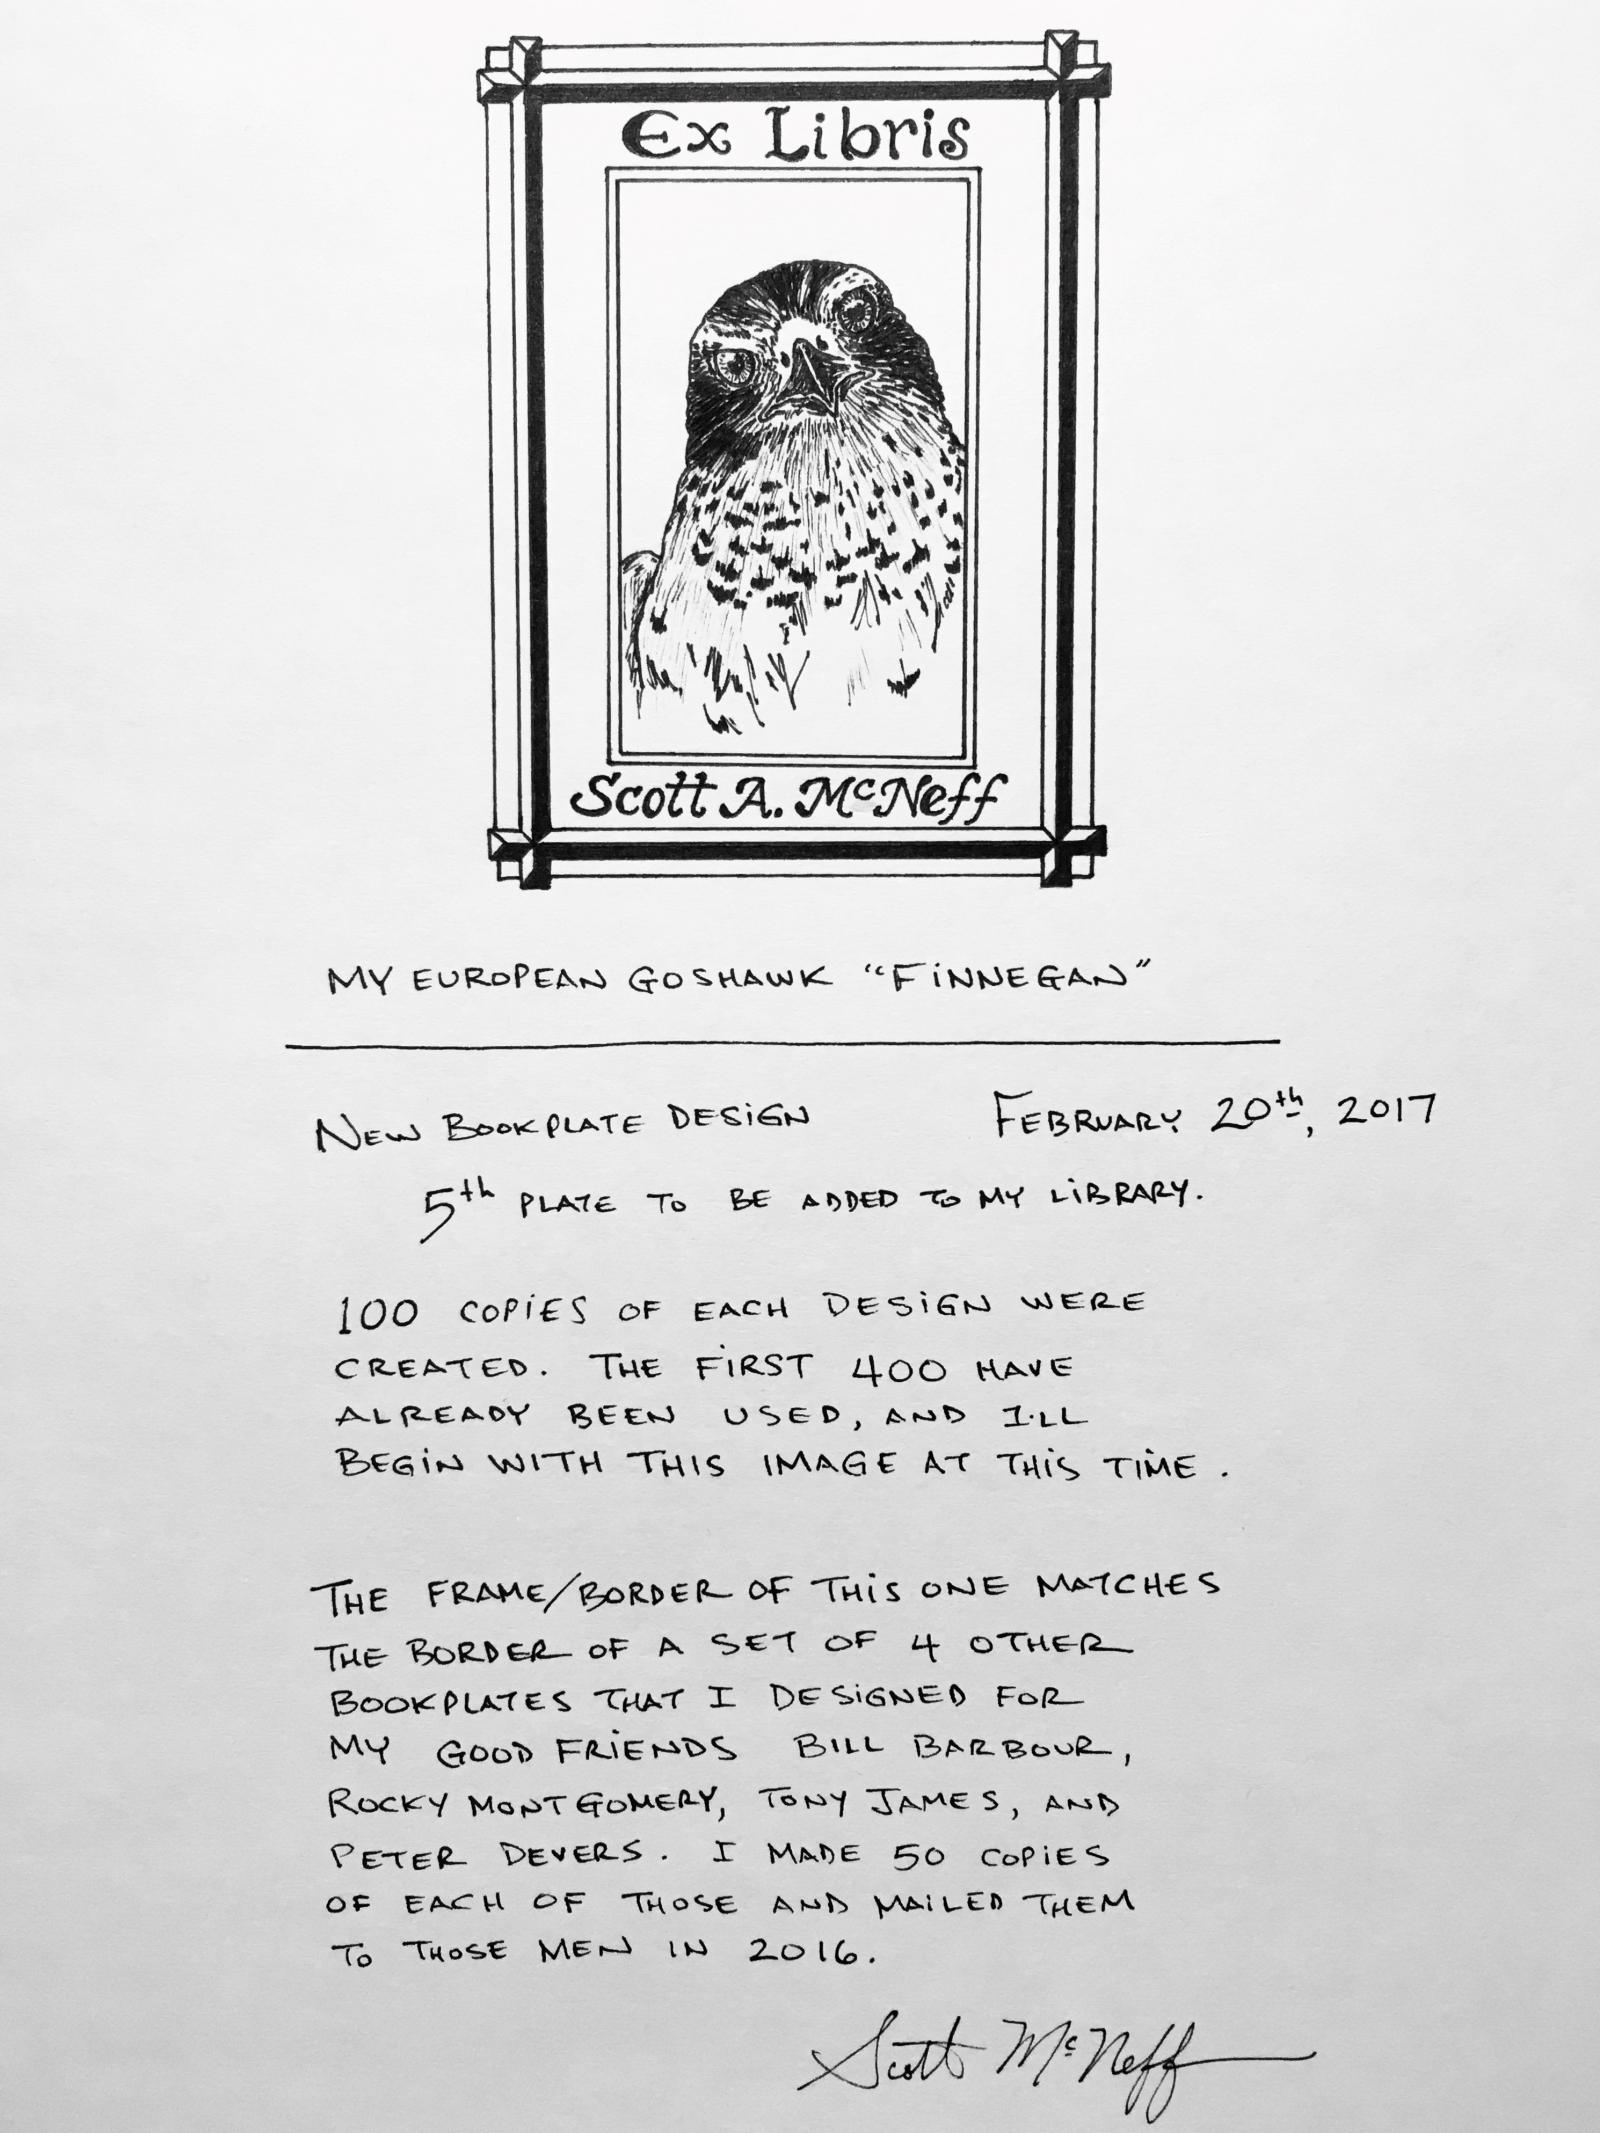 Ex Libris
Scott A. McNeff
MY EUROPEAN GOSHAWK "FINNEGAN"
NEW BOOKPLATE DESIGN FEBRUARY 20th, 2017
5th PLATE TO BE ADDED TO MY LIBRARY.
100 COPIES OF EACH DESIGN WERE
CREATED. THE FIRST 400 HAVE
ALREADY BEEN USED, AND I'LL
BEGIN WITH THIS IMAGE AT THIS TIME.
THE FRAME/BORDER OF THIS ONE MATCHES
THE BORDER OF A SET OF 4 OTHER
BOOKPLATES THAT I DESIGNED FOR
MY GOOD FRIENDS BILL BARBOUR,
ROCKY MONTGOMERY, TONY JAMES, AND
PETER DEVERS. I MADE 50 COPIES
OF EACH OF THOSE AND MAILED THEM
TO THOSE MEN IN 2016.
Scott McNeff